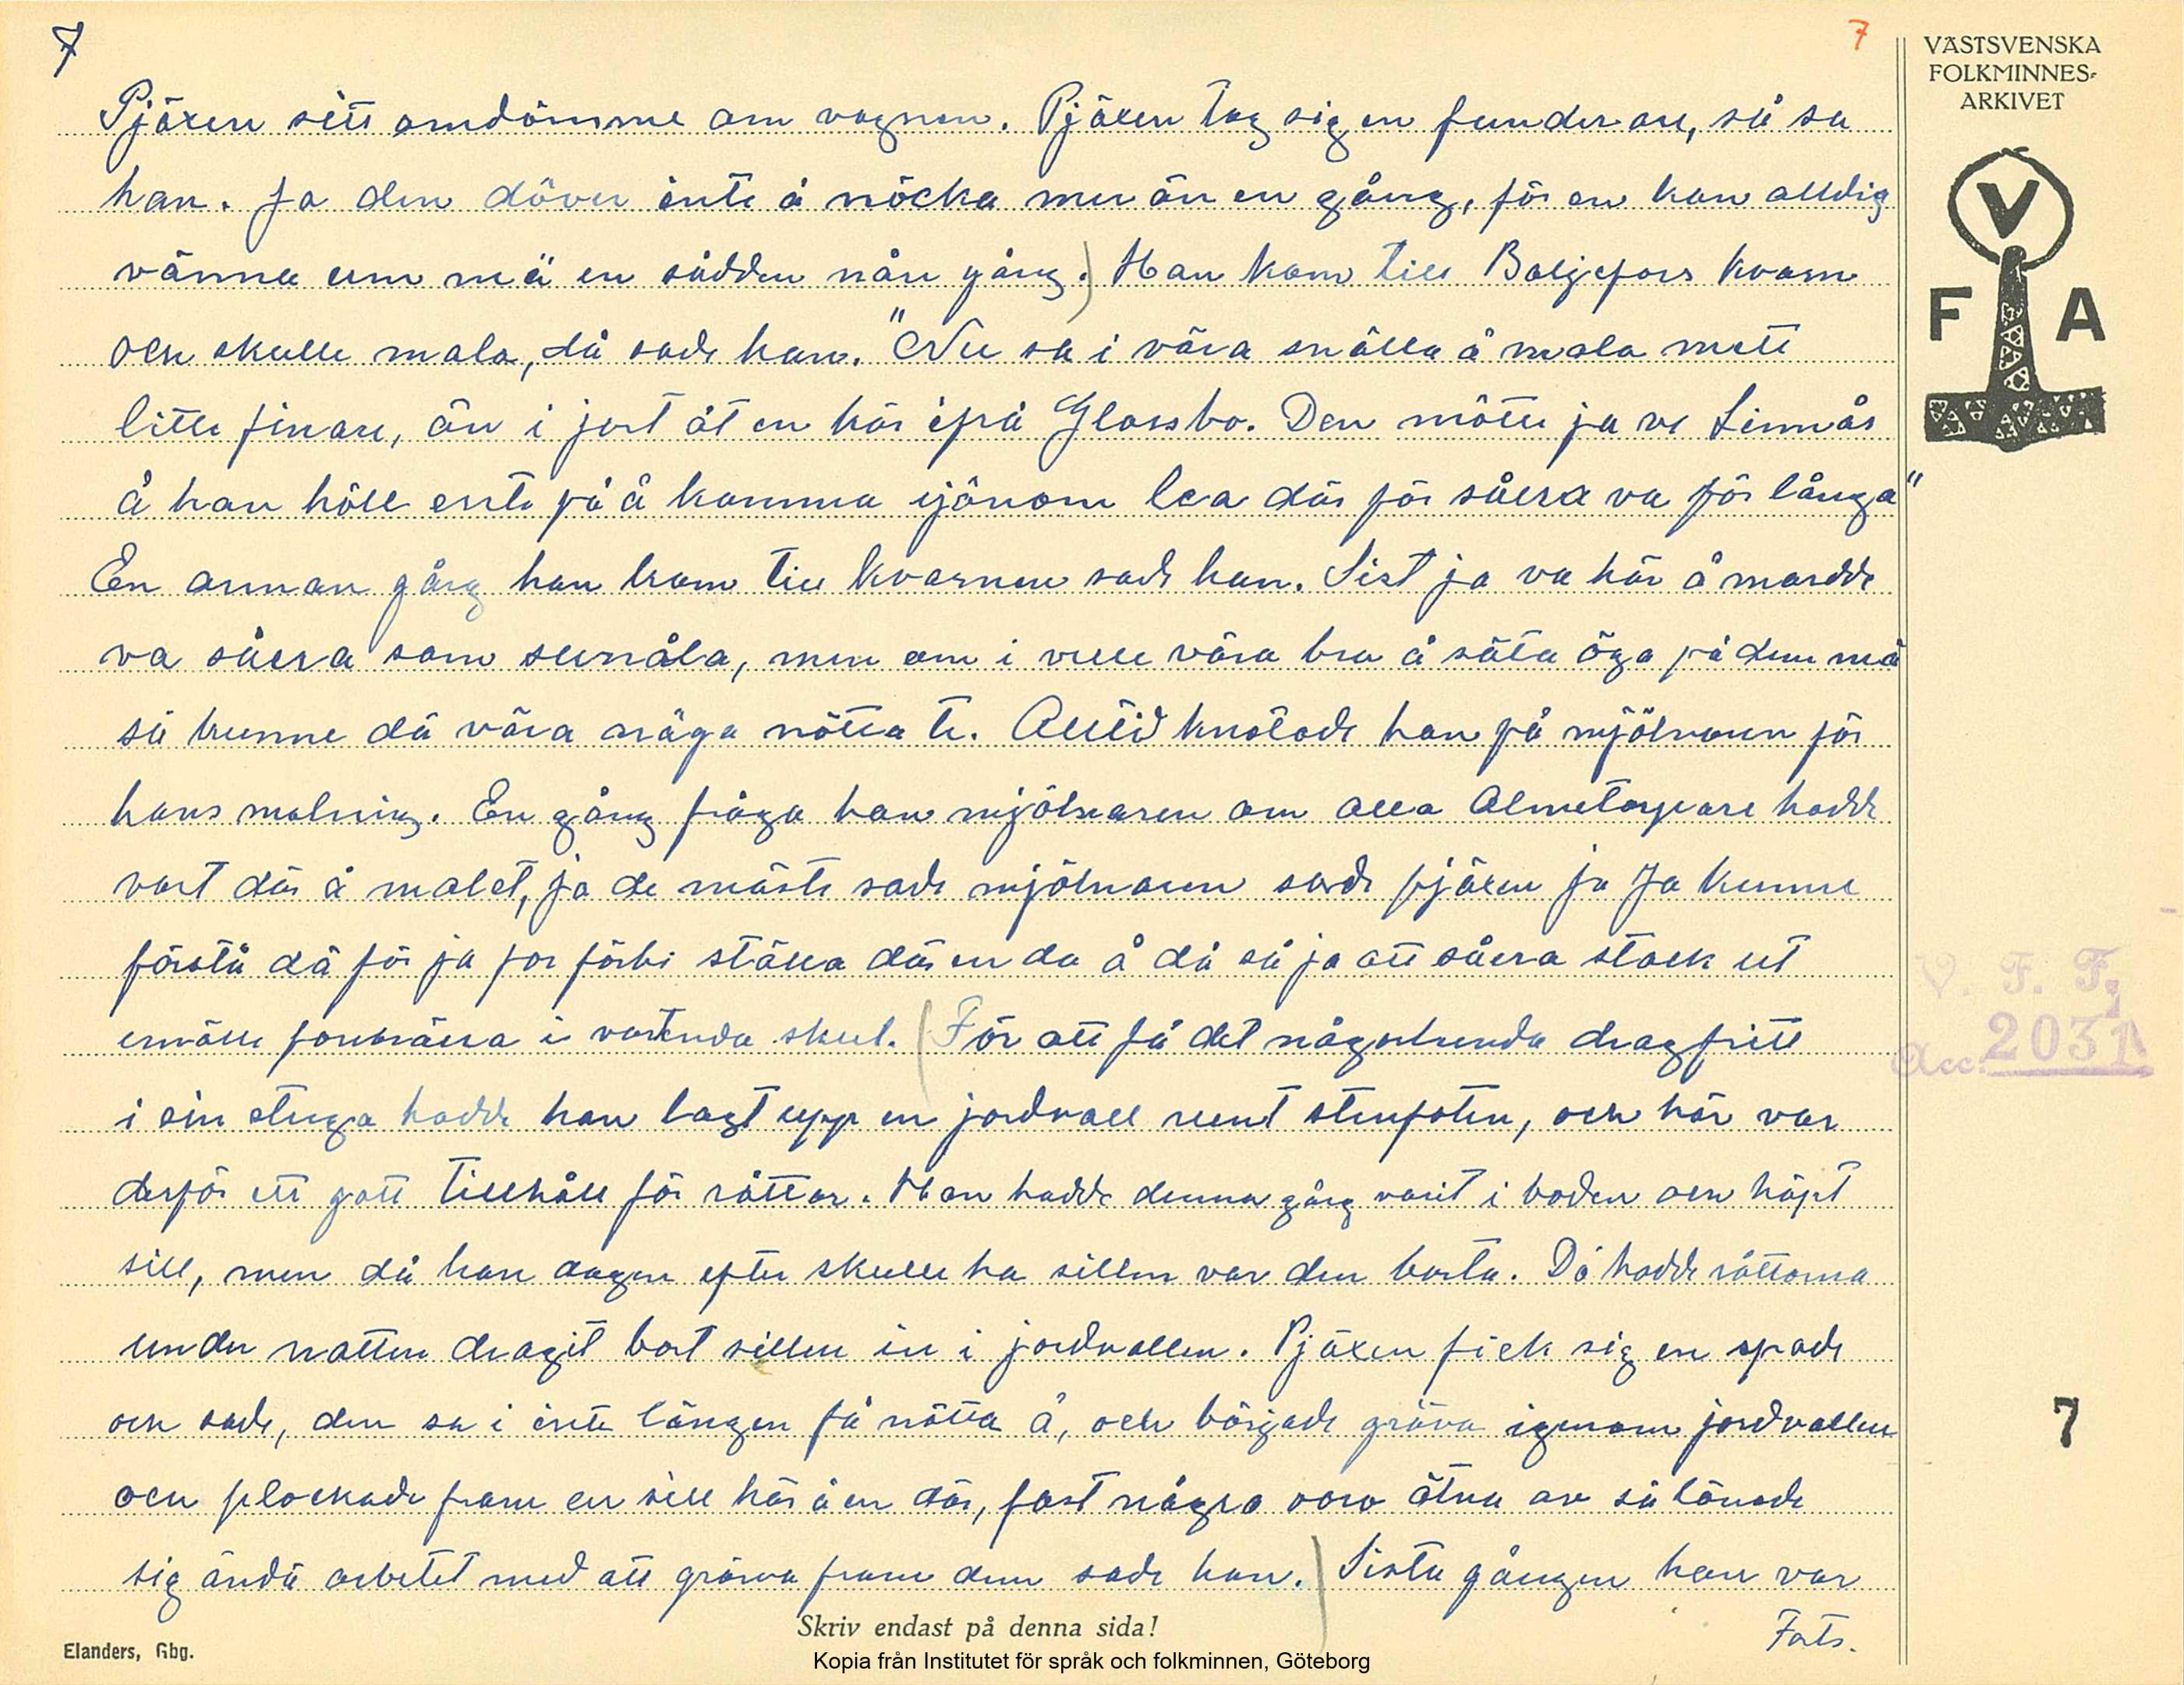 7
7
VÄSTSVENSKA
FOLKMINNES-
ARKIVET
V
F A
Pjäxen sitt omdömme om vagnen. Pjäxen tog sig en funderare, så sa
han. Ja den döver inte å nöcka mer än en gång, för en kan alldig
vänna um mä en sådden nån gång.) Han kom till Baljefors kvarn
och skulle mala, då sade han. "Nu sa i vära snälla å mala mett
litte finare, än i jort åt en här ifrå Glassbo. Den mötte ja ve Linnås
å han höll ente på å komma ijönom lea där för såera va för långa"
En annan gång han kom till kvarnen sade han. Sist ja va här å mardde
va såera som synåla, men om i velle vära bra å säta öga på dem må
så kunne dä vära näga nötta te. Alltid knotade han på mjölnaren för
hans malning. En gång fråga han mjölnaren om alla Almetorpare hadde
vart där å malet, ja de mäste sade mjölnaren sade pjäxen ja Ja kunne
förstå dä för ja for förbi ställa där en da å då så ja att såera stack ut
emälle forebräera i vartenda skul. (För att få det någorlunda dragfritt
i sin stuga hadde han lagt upp en jordvall runt stenfoten, och här var
derför ett gott tillhåll för råttor. Han hadde denna gång varit i boden och köpt
sill, men då han dagen efter skulle ha sillen var den borta. Då hadde råttorna
under natten dragit bort sillen in i jordvallen. Pjäxen fick sig en spade
och sade, den sa i inte längen få nötta å, och började gräva igenom jordvallen
och plockade fram en sill här å en där, fast några voro ätna av så lönade
sig ändå arbetet med att gräva fram dem sade han.) Sista gången han var
Forts.
V. F. F.
Acc. 2031
7
Skriv endast på denna sida!
Elanders, Gbg.
Kopia från Institutet för språk och folkminnen, Göteborg